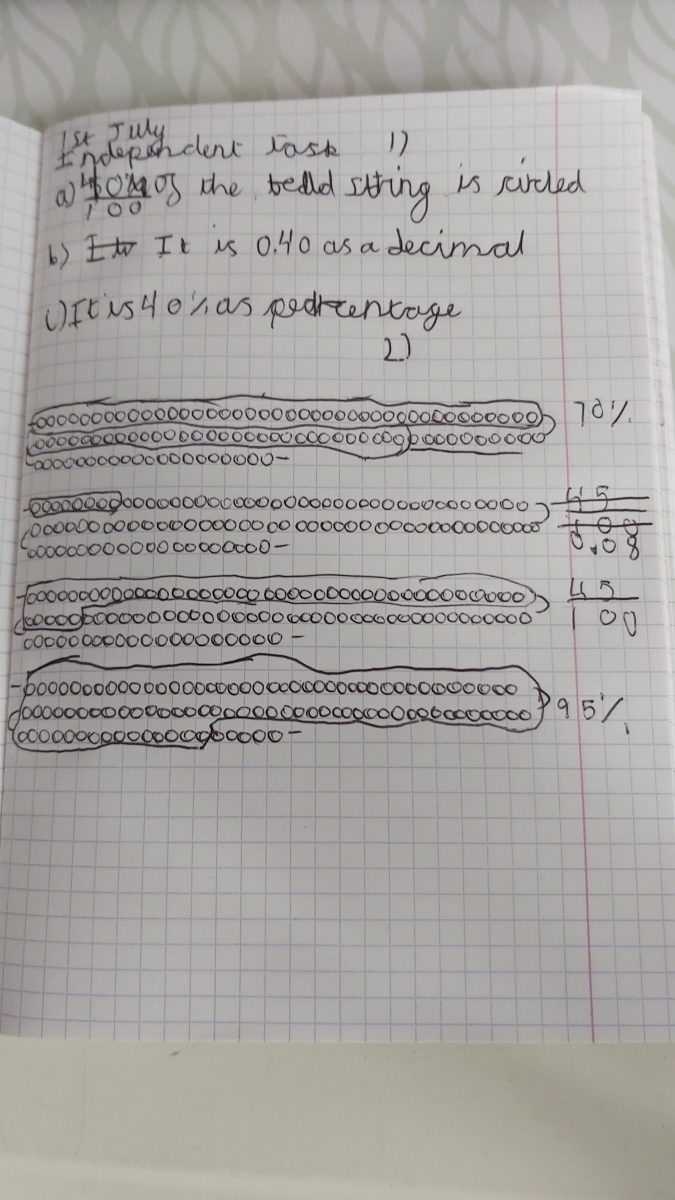 1st July
Independent task 1)
a) 40/100 of the bead string is circled
b) It is 0.40 as a decimal
c) It is 40% as percentage
2)
70%
0.08
45
100
95%